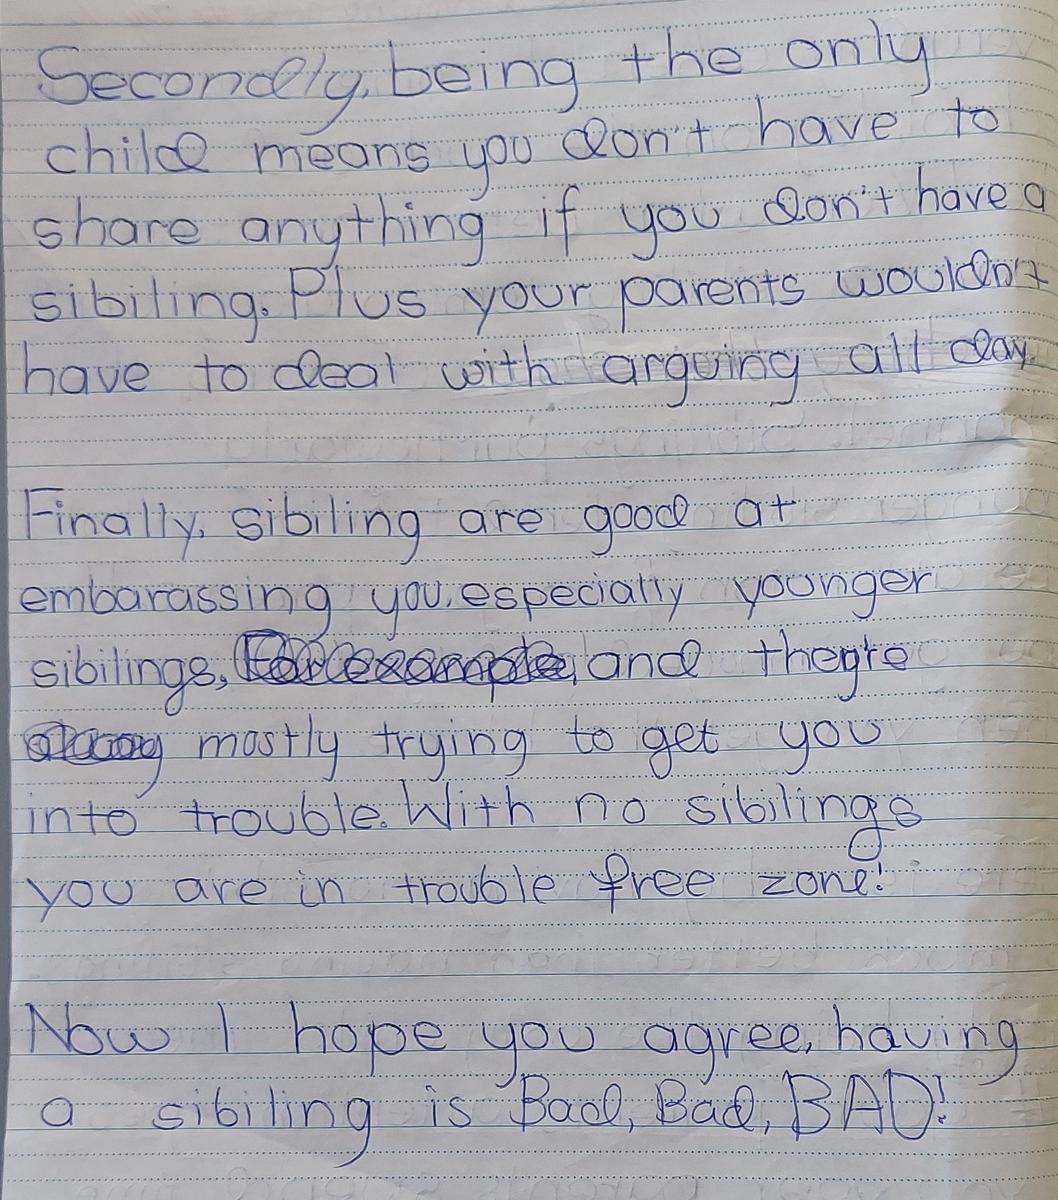 Secondly, being the only
child means you don't have to
share anything if you don't have a
sibiling. Plus your parents wouldn't
have to deal with arguing all day.
Finally, sibiling are good at
embarassing you, especially younger
sibilings, and they're
mostly trying to get you
into trouble. With no sibilings
you are in trouble free zone!
Now I hope you agree, having
a sibiling is Bad, Bad, BAD!